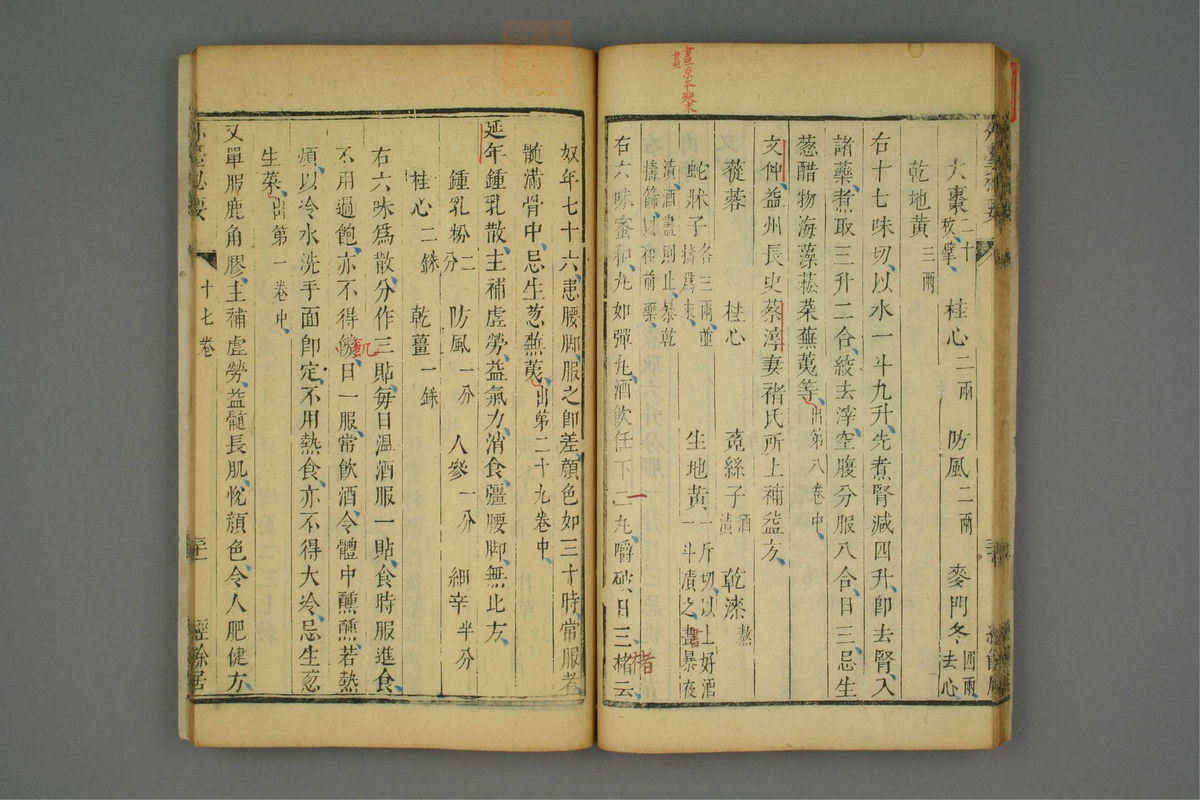 畫京本缺末
畫
大棗二十枚擘 桂心二兩 防風二兩 麥門冬四兩去心
乾地黃三兩
右十七味切以水一斗九升先煮腎減四升即去腎入
諸藥煮取三升二合絞去滓空腹分服八合日三忌生
葱醋物海藻菘菜蕪荑等出第八卷中
文仲益州長史蔡淳妻褚氏所上補益方
蓯蓉 桂心 菟絲子酒漬 乾漆熬
蛇牀子各三兩並擣爲末 生地黃一斤切以上好酒一斗漬之晝暴夜
漬酒盡則止暴乾擣篩以和前藥
右六味蜜和丸如彈丸酒飲任下二丸嚼破日三褚云
一
書
褚
奴年七十六患腰脚服之即差顏色如三十時常服者
髄滿骨中忌生葱蕪荑出第二十九卷中
延年鍾乳散主補虛勞益氣力消食彊腰脚無比方
鍾乳粉二分 防風一分 人參一分 細辛半分
桂心二銖 乾薑一銖
右六味爲散分作三貼每日温酒服一貼食時服進食
不用過飽亦不得飢日一服常飲酒令體中醺醺若熱
煩以冷水洗手面即定不用熱食亦不得大冷忌生葱
生菜出第一卷中
又單服鹿角膠主補虛勞益髓長肌悅顏色令人肥健方
外臺秘要 十七卷 經餘居